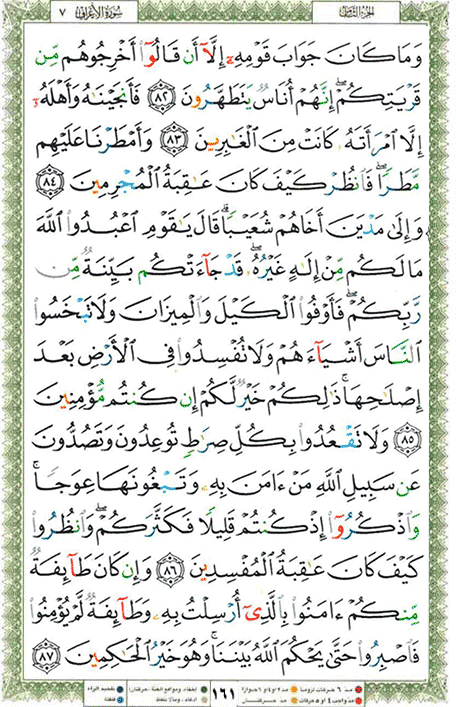 الجزء الثامن
سورة الأعراف ٧
وَمَا كَانَ جَوَابَ قَوْمِهِۦٓ إِلَّآ أَن قَالُوٓا۟ أَخْرِجُوهُم مِّن
قَرْيَتِكُمْ ۖ إِنَّهُمْ أُنَاسٌ يَتَطَهَّرُونَ ٨٢ فَأَنجَيْنَـٰهُ وَأَهْلَهُۥٓ
إِلَّا ٱمْرَأَتَهُۥ كَانَتْ مِنَ ٱلْغَـٰبِرِينَ ٨٣ وَأَمْطَرْنَا عَلَيْهِم
مَّطَرًا ۖ فَٱنظُرْ كَيْفَ كَانَ عَـٰقِبَةُ ٱلْمُجْرِمِينَ ٨٤
وَإِلَىٰ مَدْيَنَ أَخَاهُمْ شُعَيْبًا ۗ قَالَ يَـٰقَوْمِ ٱعْبُدُوا۟ ٱللَّهَ
مَا لَكُم مِّنْ إِلَـٰهٍ غَيْرُهُۥ ۖ قَدْ جَآءَتْكُم بَيِّنَةٌ مِّن
رَّبِّكُمْ ۖ فَأَوْفُوا۟ ٱلْكَيْلَ وَٱلْمِيزَانَ وَلَا تَبْخَسُوا۟
ٱلنَّاسَ أَشْيَآءَهُمْ وَلَا تُفْسِدُوا۟ فِى ٱلْأَرْضِ بَعْدَ
إِصْلَـٰحِهَا ۚ ذَٰلِكُمْ خَيْرٌ لَّكُمْ إِن كُنتُم مُّؤْمِنِينَ
٨٥ وَلَا تَقْعُدُوا۟ بِكُلِّ صِرَٰطٍ تُوعِدُونَ وَتَصُدُّونَ
عَن سَبِيلِ ٱللَّهِ مَنْ ءَامَنَ بِهِۦ وَتَبْغُونَهَا عِوَجًا ۚ
وَٱذْكُرُوٓا۟ إِذْ كُنتُمْ قَلِيلًا فَكَثَّرَكُمْ ۖ وَٱنظُرُوا۟
كَيْفَ كَانَ عَـٰقِبَةُ ٱلْمُفْسِدِينَ ٨٦ وَإِن كَانَ طَآئِفَةٌ
مِّنكُمْ ءَامَنُوا۟ بِٱلَّذِىٓ أُرْسِلْتُ بِهِۦ وَطَآئِفَةٌ لَّمْ يُؤْمِنُوا۟
فَٱصْبِرُوا۟ حَتَّىٰ يَحْكُمَ ٱللَّهُ بَيْنَنَا ۚ وَهُوَ خَيْرُ ٱلْحَـٰكِمِينَ ٨٧
١٦١